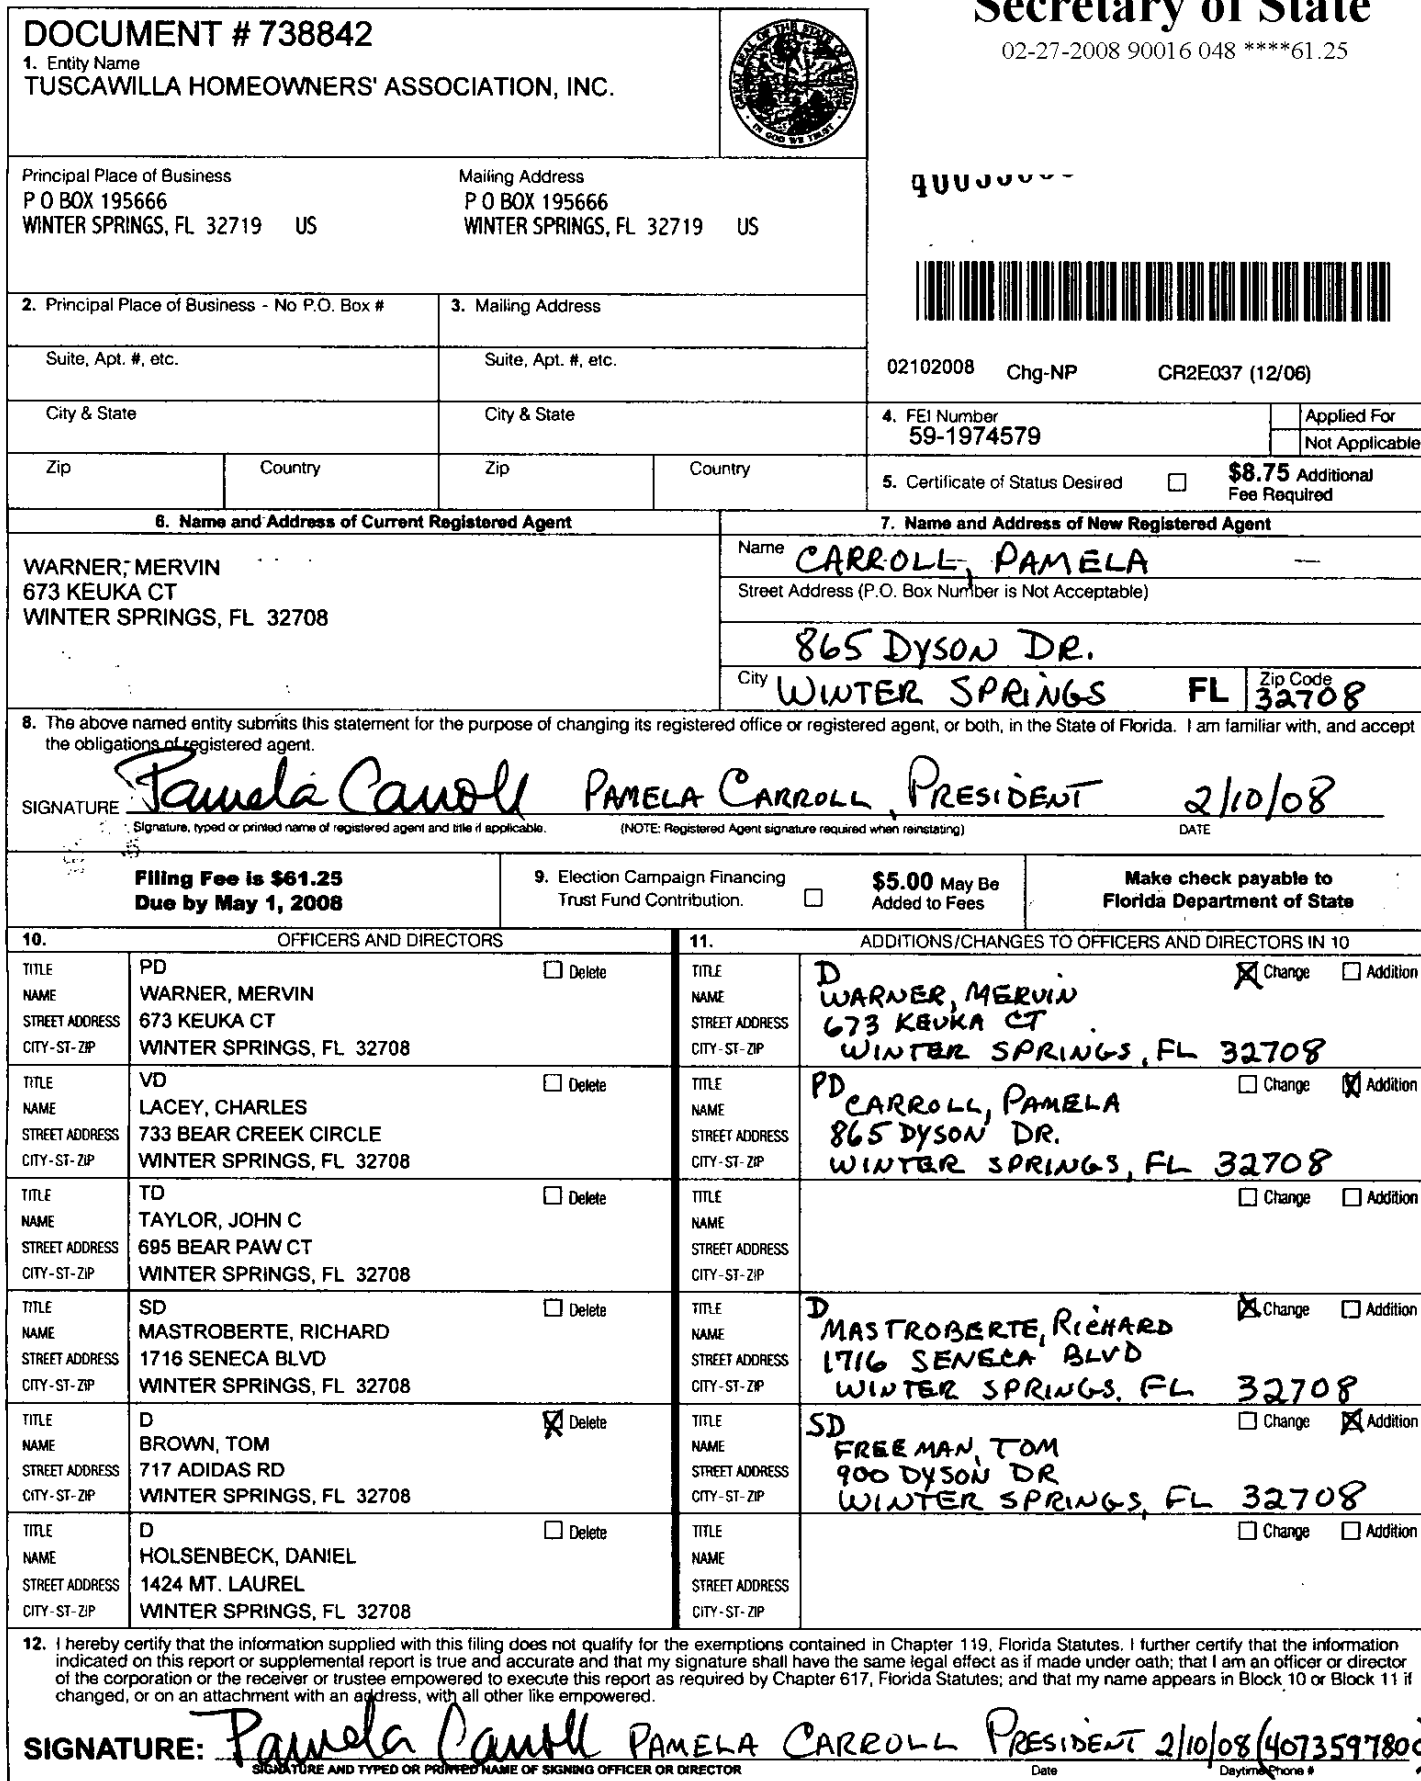 Secretary of State
02-27-2008 90016 048 ****61.25
DOCUMENT # 738842
1. Entity Name
TUSCAWILLA HOMEOWNERS' ASSOCIATION, INC.
GREAT SEAL OF THE STATE OF FLORIDA
IN GOD WE TRUST
Principal Place of Business
P O BOX 195666
WINTER SPRINGS, FL 32719 US
Mailing Address
P O BOX 195666
WINTER SPRINGS, FL 32719 US
2. Principal Place of Business - No P.O. Box #
3. Mailing Address
Suite, Apt. #, etc.
Suite, Apt. #, etc.
City & State
City & State
Zip
Country
Zip
Country
02102008 Chg-NP CR2E037 (12/06)
4. FEI Number
59-1974579
Applied For
Not Applicable
5. Certificate of Status Desired
$8.75 Additional
Fee Required
6. Name and Address of Current Registered Agent
WARNER, MERVIN
673 KEUKA CT
WINTER SPRINGS, FL 32708
7. Name and Address of New Registered Agent
Name CARROLL, PAMELA
Street Address (P.O. Box Number is Not Acceptable)
865 DYSON DR.
City WINTER SPRINGS FL Zip Code 32708
8. The above named entity submits this statement for the purpose of changing its registered office or registered agent, or both, in the State of Florida. I am familiar with, and accept
the obligations of registered agent.
SIGNATURE Pamela Carroll PAMELA CARROLL, PRESIDENT 2/10/08
Signature, typed or printed name of registered agent and title if applicable. (NOTE: Registered Agent signature required when reinstating) DATE
Filing Fee is $61.25
Due by May 1, 2008
9. Election Campaign Financing
Trust Fund Contribution.
$5.00 May Be
Added to Fees
Make check payable to
Florida Department of State
10. OFFICERS AND DIRECTORS
11. ADDITIONS/CHANGES TO OFFICERS AND DIRECTORS IN 10
TITLE PD Delete
NAME WARNER, MERVIN
STREET ADDRESS 673 KEUKA CT
CITY-ST-ZIP WINTER SPRINGS, FL 32708
TITLE D Change Addition
NAME WARNER, MERVIN
STREET ADDRESS 673 KEUKA CT
CITY-ST-ZIP WINTER SPRINGS, FL 32708
TITLE VD Delete
NAME LACEY, CHARLES
STREET ADDRESS 733 BEAR CREEK CIRCLE
CITY-ST-ZIP WINTER SPRINGS, FL 32708
TITLE PD Change Addition
NAME CARROLL, PAMELA
STREET ADDRESS 865 DYSON DR.
CITY-ST-ZIP WINTER SPRINGS, FL 32708
TITLE TD Delete
NAME TAYLOR, JOHN C
STREET ADDRESS 695 BEAR PAW CT
CITY-ST-ZIP WINTER SPRINGS, FL 32708
TITLE Change Addition
NAME
STREET ADDRESS
CITY-ST-ZIP
TITLE SD Delete
NAME MASTROBERTE, RICHARD
STREET ADDRESS 1716 SENECA BLVD
CITY-ST-ZIP WINTER SPRINGS, FL 32708
TITLE D Change Addition
NAME MASTROBERTE, RICHARD
STREET ADDRESS 1716 SENECA BLVD
CITY-ST-ZIP WINTER SPRINGS, FL 32708
TITLE D Delete
NAME BROWN, TOM
STREET ADDRESS 717 ADIDAS RD
CITY-ST-ZIP WINTER SPRINGS, FL 32708
TITLE SD Change Addition
NAME FREEMAN, TOM
STREET ADDRESS 900 DYSON DR
CITY-ST-ZIP WINTER SPRINGS, FL 32708
TITLE D Delete
NAME HOLSENBECK, DANIEL
STREET ADDRESS 1424 MT. LAUREL
CITY-ST-ZIP WINTER SPRINGS, FL 32708
TITLE Change Addition
NAME
STREET ADDRESS
CITY-ST-ZIP
12. I hereby certify that the information supplied with this filing does not qualify for the exemptions contained in Chapter 119, Florida Statutes. I further certify that the information
indicated on this report or supplemental report is true and accurate and that my signature shall have the same legal effect as if made under oath; that I am an officer or director
of the corporation or the receiver or trustee empowered to execute this report as required by Chapter 617, Florida Statutes; and that my name appears in Block 10 or Block 11 if
changed, or on an attachment with an address, with all other like empowered.
SIGNATURE: Pamela Carroll PAMELA CARROLL PRESIDENT 2/10/08 (4073597800
SIGNATURE AND TYPED OR PRINTED NAME OF SIGNING OFFICER OR DIRECTOR Date Daytime Phone #